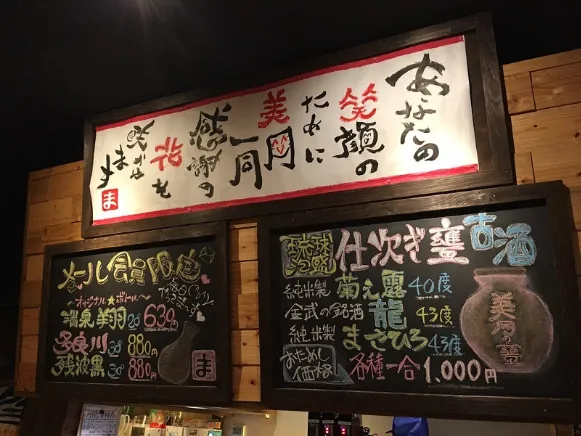 あなたの
笑顔の
ために
美岡
一同
感謝の
花を
咲かせ
ます
ま
メール会員限定
〜オリジナル★ボトル〜
温泉美羽 2d 630円
多良川 2d 880円
残波黒 2d 880円
ま
琉球
仕次ぎ甕古酒
純米製 菊之露 40度
金武の銘酒 龍 43度
純米製 まさひろ 43度
おためし価格 各種一合 1,000円